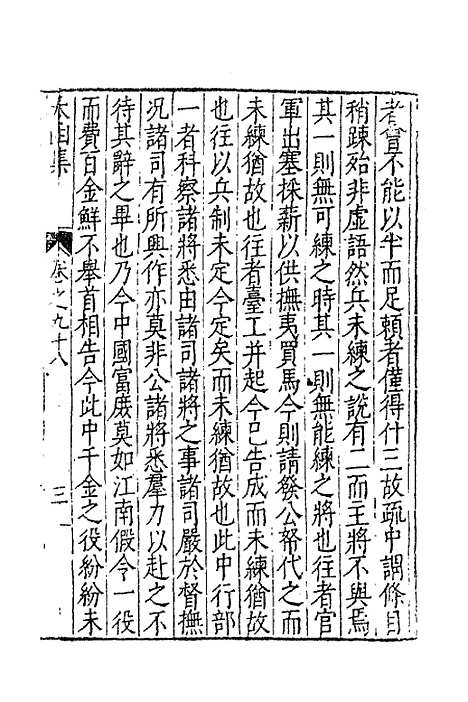 者實不能以半而足賴者僅得什三故疏中謂條目
稍踈殆非虛語然兵未練之說有二而主將不與焉
其一則無可練之時其一則無能練之將也往者官
軍出塞採薪以供撫夷買馬今則請發公帑代之而
未練猶故也往者臺工并起今已告成而未練猶故
也往以兵制未定今定矣而未練猶故也此中行部
一者科察諸將悉由諸司諸將之事諸司嚴於督撫
況諸司有所興作亦莫非公諸將悉羣力以赴之不
待其辭之畢也乃今中國富庶莫如江南假令一役
而費百金鮮不舉首相告今此中千金之役紛紛未
太函集
卷之九十八
三